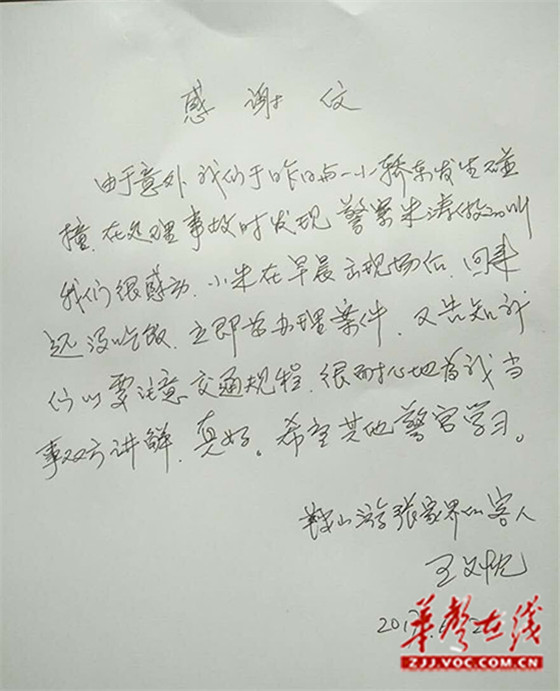 感谢信
由于意外我们于昨日与一小轿车发生碰
撞,在处理事故时发现警察朱涛做的叫
我们很感动.小朱在早晨出现场后.回来
还没吃饭.立即着办理案件.又告知我
们以要注意交通规程.很耐心地为我当
事双方讲解.真好。希望其他警官学习。
鞍山游张家界的客人
王文
201
华声在线
ZJJ.VOC.COM.CN